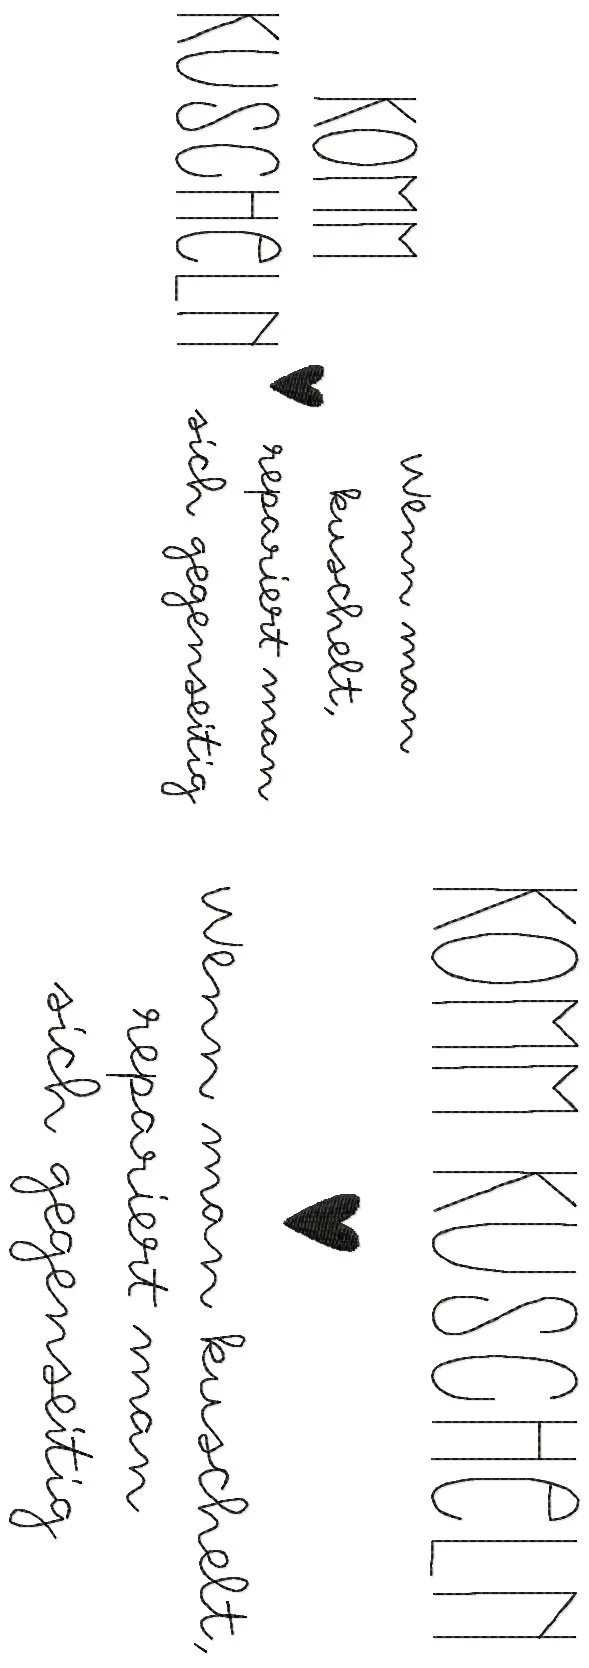 KOMM
KUSCHELN
Wenn man
kuschelt,
repariert man
sich gegenseitig
KOMM KUSCHELN
Wenn man kuschelt,
repariert man
sich gegenseitig